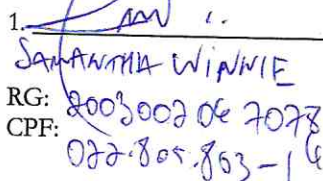 1.
SAMANTHA WINNIE
RG: 2003002067078
CPF:
022.805.863-16